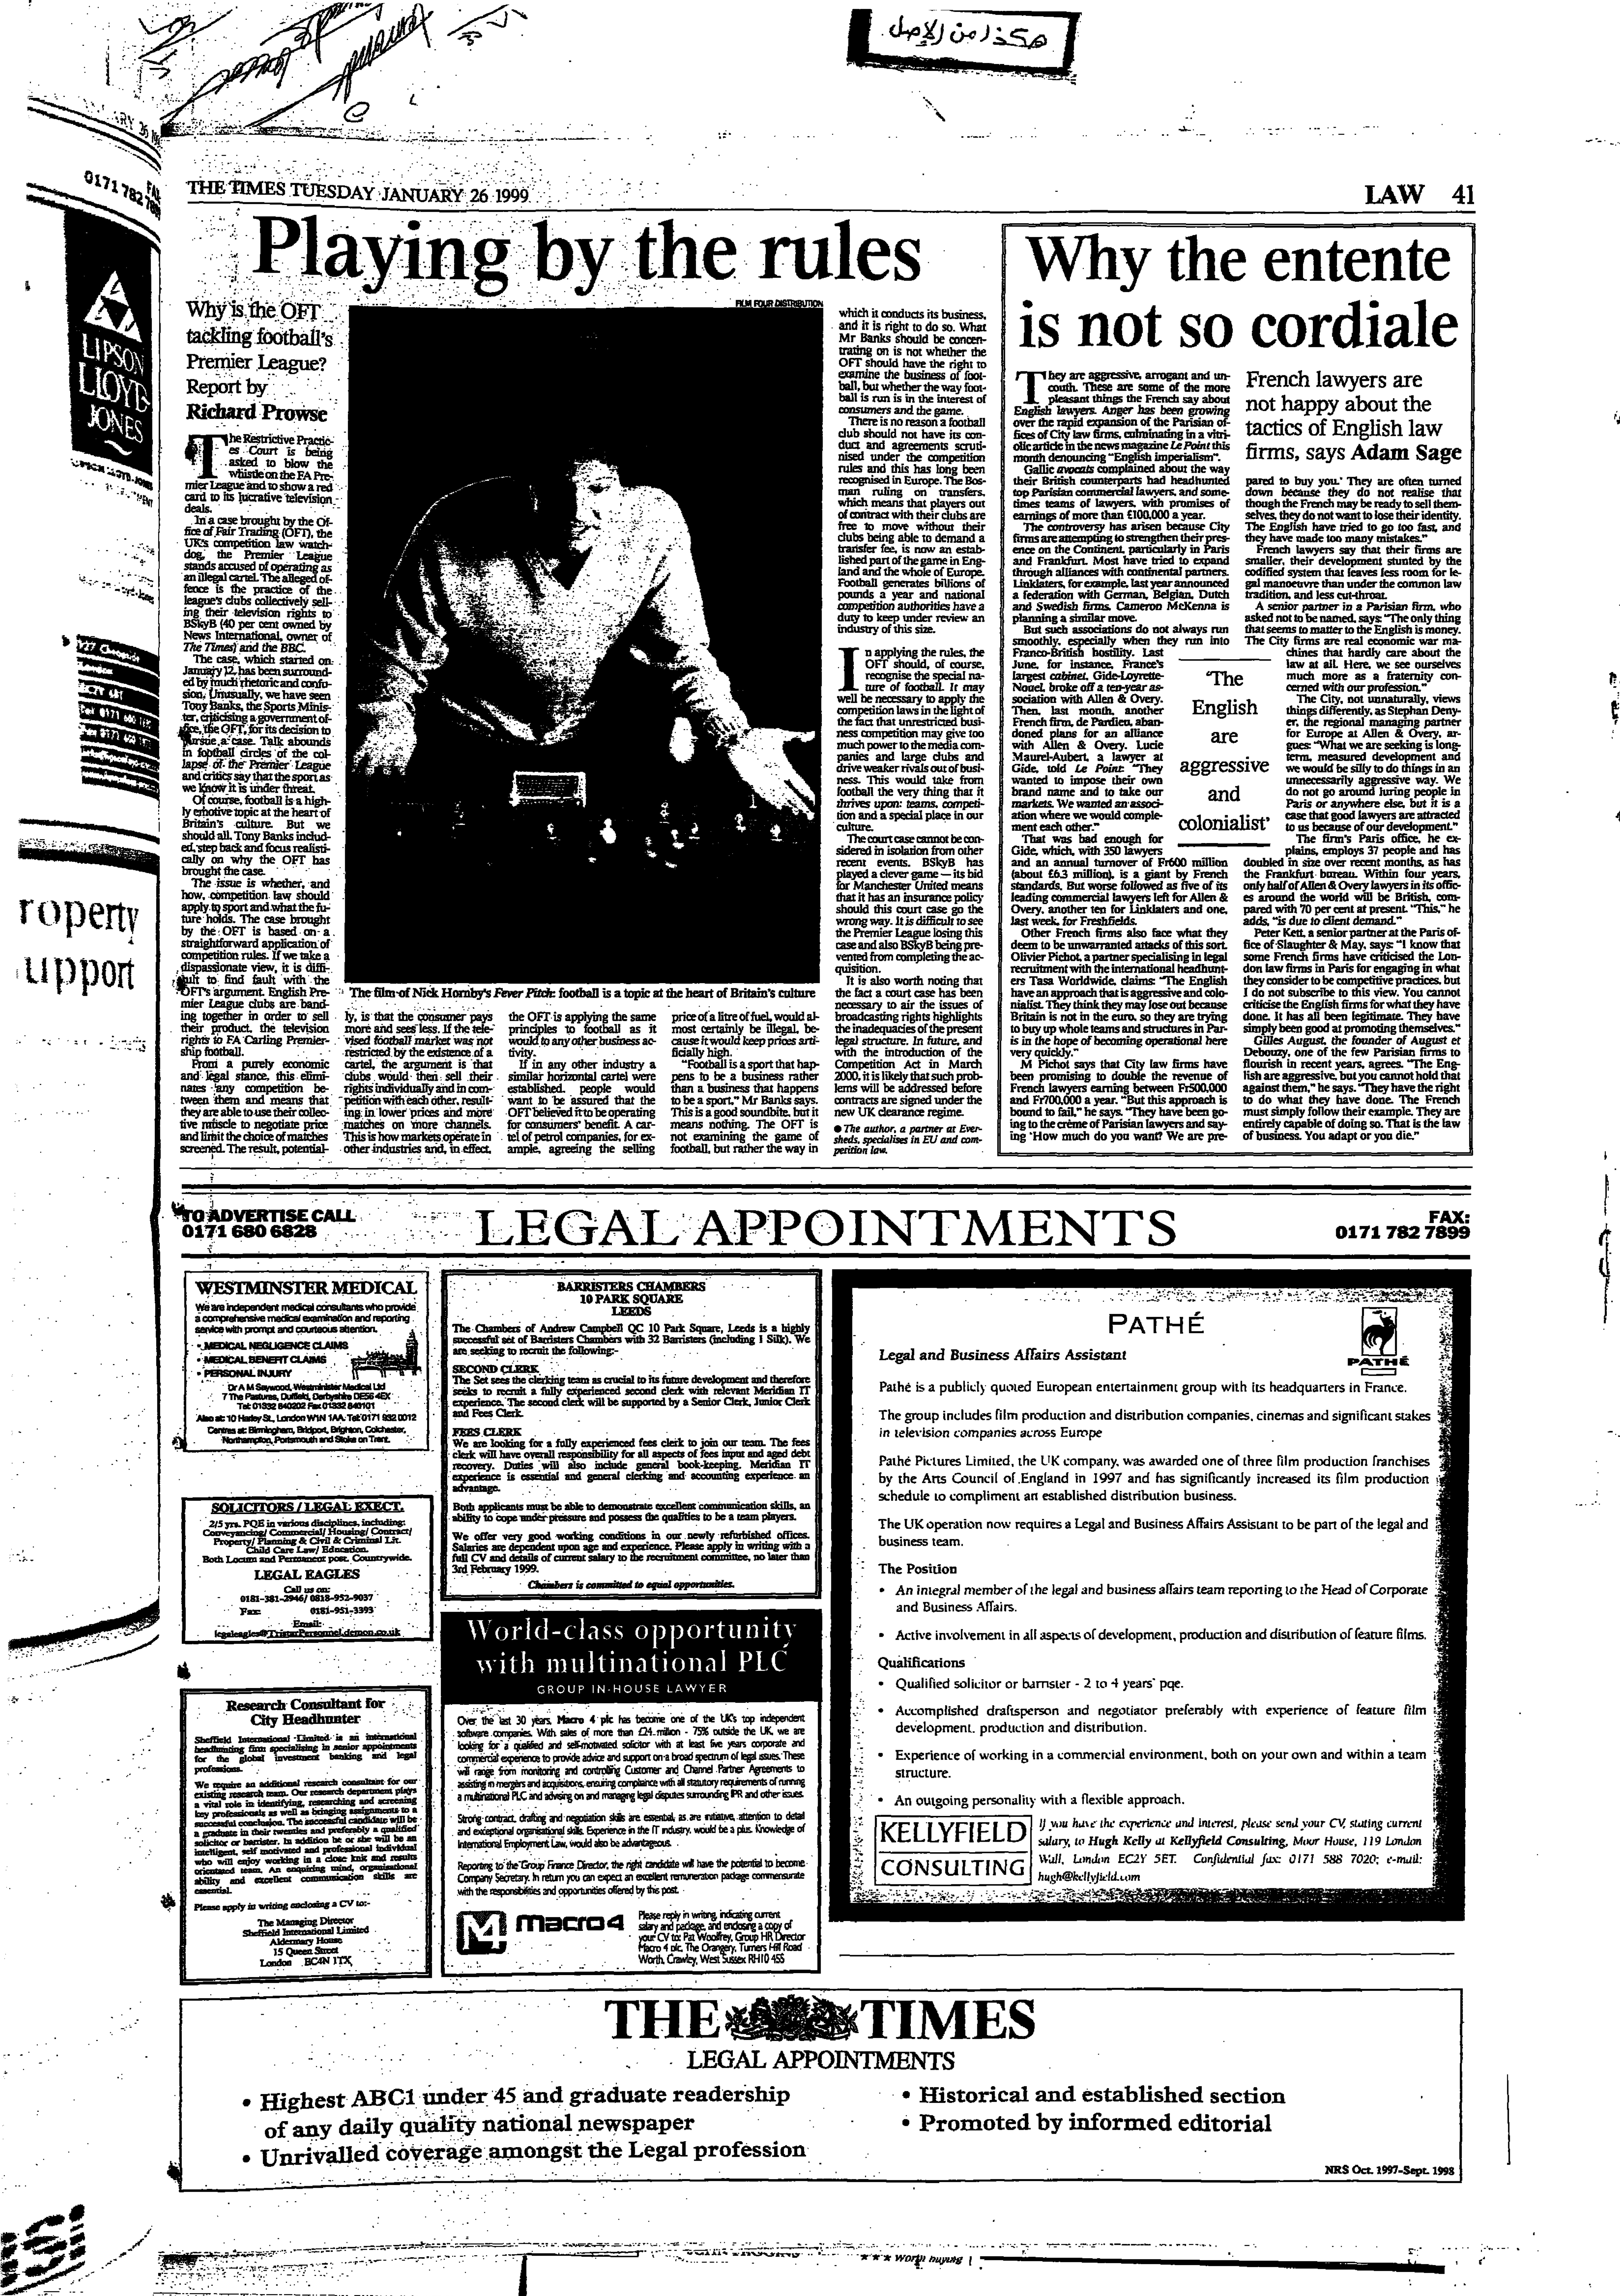 هكذا من الأصل
THE TIMES TUESDAY JANUARY 26 1999
LAW 41
Playing by the rules
Why is the OFT
tackling football's
Premier League?
Report by
Richard Prowse
The Restrictive Practic-
es Court is being
asked to blow the
whistle on the FA Pre-
mier League and to show a red
card to its lucrative television
deals.
In a case brought by the Of-
fice of Fair Trading (OFT), the
UK's competition law watch-
dog, the Premier League
stands accused of operating as
an illegal cartel. The alleged of-
fence is the practice of the
league's clubs collectively sell-
ing their television rights to
BSkyB (40 per cent owned by
News International, owner of
The Times) and the BBC.
The case, which started on
January 12, has been surround-
ed by much rhetoric and confu-
sion. Unusually, we have seen
Tony Banks, the Sports Minis-
ter, criticising a government of-
fice, the OFT, for its decision to
pursue a case. Talk abounds
in football circles of the col-
lapse of the Premier League
and critics say that the sport as
we know it is under threat.
Of course, football is a high-
ly emotive topic at the heart of
Britain's culture. But we
should all, Tony Banks includ-
ed, step back and focus realisti-
cally on why the OFT has
brought the case.
The issue is whether, and
how, competition law should
apply to sport and what the fu-
ture holds. The case brought
by the OFT is based on a
straightforward application of
competition rules. If we take a
dispassionate view, it is diffi-
cult to find fault with the
OFT's argument. English Pre-
mier League clubs are band-
ing together in order to sell
their product, the television
rights to FA Carling Premier-
ship football.
From a purely economic
and legal stance, this elimi-
nates any competition be-
tween them and means that
they are able to use their collec-
tive muscle to negotiate price
and limit the choice of matches
screened. The result, potential-
FILM FOUR DISTRIBUTION
The film of Nick Hornby's Fever Pitch: football is a topic at the heart of Britain's culture
ly, is that the consumer pays
more and sees less. If the tele-
vised football market was not
restricted by the existence of a
cartel, the argument is that
clubs would then sell their
rights individually and in com-
petition with each other, result-
ing in lower prices and more
matches on more channels.
This is how markets operate in
other industries and, in effect,
the OFT is applying the same
principles to football as it
would to any other business ac-
tivity.
If in any other industry a
similar horizontal cartel were
established, people would
want to be assured that the
OFT believed it to be operating
for consumers' benefit. A car-
tel of petrol companies, for ex-
ample, agreeing the selling
price of a litre of fuel, would al-
most certainly be illegal, be-
cause it would keep prices arti-
ficially high.
"Football is a sport that hap-
pens to be a business rather
than a business that happens
to be a sport," Mr Banks says.
This is a good soundbite, but it
means nothing. The OFT is
not examining the game of
football, but rather the way in
which it conducts its business,
and it is right to do so. What
Mr Banks should be concen-
trating on is not whether the
OFT should have the right to
examine the business of foot-
ball, but whether the way foot-
ball is run is in the interest of
consumers and the game.
There is no reason a football
club should not have its con-
duct and agreements scruti-
nised under the competition
rules and this has long been
recognised in Europe. The Bos-
man ruling on transfers,
which means that players out
of contract with their clubs are
free to move without their
clubs being able to demand a
transfer fee, is now an estab-
lished part of the game in Eng-
land and the whole of Europe.
Football generates billions of
pounds a year and national
competition authorities have a
duty to keep under review an
industry of this size.
In applying the rules, the
OFT should, of course,
recognise the special na-
ture of football. It may
well be necessary to apply the
competition laws in the light of
the fact that unrestricted busi-
ness competition may give too
much power to the media com-
panies and large clubs and
drive weaker rivals out of busi-
ness. This would take from
football the very thing that it
thrives upon: teams, competi-
tion and a special place in our
culture.
The court case cannot be con-
sidered in isolation from other
recent events. BSkyB has
played a clever game — its bid
for Manchester United means
that it has an insurance policy
should this court case go the
wrong way. It is difficult to see
the Premier League losing this
case and also BSkyB being pre-
vented from completing the ac-
quisition.
It is also worth noting that
the fact a court case has been
necessary to air the issues of
broadcasting rights highlights
the inadequacies of the present
legal structure. In future, and
with the introduction of the
Competition Act in March
2000, it is likely that such prob-
lems will be addressed before
contracts are signed under the
new UK clearance regime.
● The author, a partner at Ever-
sheds, specialises in EU and com-
petition law.
Why the entente
is not so cordiale
French lawyers are
not happy about the
tactics of English law
firms, says Adam Sage
They are aggressive, arrogant and un-
couth. These are some of the more
pleasant things the French say about
English lawyers. Anger has been growing
over the rapid expansion of the Parisian of-
fices of City law firms, culminating in a vitri-
olic article in the news magazine Le Point this
month denouncing "English imperialism".
Gallic avocats complained about the way
their British counterparts had headhunted
top Parisian commercial lawyers, and some-
times teams of lawyers, with promises of
earnings of more than £100,000 a year.
The controversy has arisen because City
firms are attempting to strengthen their pres-
ence on the Continent, particularly in Paris
and Frankfurt. Most have tried to expand
through alliances with continental partners.
Linklaters, for example, last year announced
a federation with German, Belgian, Dutch
and Swedish firms. Cameron McKenna is
planning a similar move.
But such associations do not always run
smoothly, especially when they run into
Franco-British hostility. Last
June, for instance, France's
largest cabinet, Gide-Loyrette-
Nouel, broke off a ten-year as-
sociation with Allen & Overy.
Then, last month, another
French firm, de Pardieu, aban-
doned plans for an alliance
with Allen & Overy. Lucie
Maurel-Aubert, a lawyer at
Gide, told Le Point: "They
wanted to impose their own
brand name and to take our
markets. We wanted an associ-
ation where we would comple-
ment each other."
That was bad enough for
Gide, which, with 350 lawyers
and an annual turnover of Fr600 million
(about £6.3 million), is a giant by French
standards. But worse followed as five of its
leading commercial lawyers left for Allen &
Overy, another ten for Linklaters and one,
last week, for Freshfields.
Other French firms also face what they
deem to be unwarranted attacks of this sort.
Olivier Pichot, a partner specialising in legal
recruitment with the international headhunt-
ers Tasa Worldwide, claims: "The English
have an approach that is aggressive and colo-
nialist. They think they may lose out because
Britain is not in the euro, so they are trying
to buy up whole teams and structures in Par-
is in the hope of becoming operational here
very quickly."
M Pichot says that City law firms have
been promising to double the revenue of
French lawyers earning between Fr500,000
and Fr700,000 a year. "But this approach is
bound to fail," he says. "They have been go-
ing to the crème of Parisian lawyers and say-
ing 'How much do you want? We are pre-
'The
English
are
aggressive
and
colonialist'
pared to buy you.' They are often turned
down because they do not realise that
though the French may be ready to sell them-
selves, they do not want to lose their identity.
The English have tried to go too fast, and
they have made too many mistakes."
French lawyers say that their firms are
smaller, their development stunted by the
codified system that leaves less room for le-
gal manoeuvre than under the common law
tradition, and less cut-throat.
A senior partner in a Parisian firm, who
asked not to be named, says: "The only thing
that seems to matter to the English is money.
The City firms are real economic war ma-
chines that hardly care about the
law at all. Here, we see ourselves
much more as a fraternity con-
cerned with our profession."
The City, not unnaturally, views
things differently, as Stephan Deny-
er, the regional managing partner
for Europe at Allen & Overy, ar-
gues: "What we are seeking is long-
term, measured development and
we would be silly to do things in an
unnecessarily aggressive way. We
do not go around luring people in
Paris or anywhere else, but it is a
case that good lawyers are attracted
to us because of our development."
The firm's Paris office, he ex-
plains, employs 37 people and has
doubled in size over recent months, as has
the Frankfurt bureau. Within four years,
only half of Allen & Overy lawyers in its offic-
es around the world will be British, com-
pared with 70 per cent at present. "This," he
adds, "is due to client demand."
Peter Kett, a senior partner at the Paris of-
fice of Slaughter & May, says: "I know that
some French firms have criticised the Lon-
don law firms in Paris for engaging in what
they consider to be competitive practices, but
I do not subscribe to this view. You cannot
criticise the English firms for what they have
done. It has all been legitimate. They have
simply been good at promoting themselves."
Gilles August, the founder of August et
Debouzy, one of the few Parisian firms to
flourish in recent years, agrees. "The Eng-
lish are aggressive, but you cannot hold that
against them," he says. "They have the right
to do what they have done. The French
must simply follow their example. They are
entirely capable of doing so. That is the law
of business. You adapt or you die."
0171 782
LIPSON
LLOYD-
JONES
roperty
upport
TO ADVERTISE CALL
0171 680 6828
LEGAL APPOINTMENTS
FAX:
0171 782 7899
WESTMINSTER MEDICAL
We are independent medical consultants who provide
a comprehensive medical examination and reporting
service with prompt and courteous attention.
• MEDICAL NEGLIGENCE CLAIMS
• MEDICAL BENEFIT CLAIMS
• PERSONAL INJURY
Dr A M Saywood, Westminster Medical Ltd
7 The Pastures, Duffield, Derbyshire DE56 4EX
Tel: 01332 840202 Fax 01332 840101
Also at: 10 Harley St., London W1N 1AA. Tel: 0171 932 0012
Centres at: Birmingham, Bridport, Brighton, Colchester,
Northampton, Portsmouth and Stoke on Trent.
SOLICITORS / LEGAL EXECT.
2/5 yrs. PQE in various disciplines, including:
Conveyancing/ Commercial/ Housing/ Contract/
Property/ Planning & Civil & Criminal Lit.
Child Care Law/ Education.
Both Locum and Permanent post. Countrywide.
LEGAL EAGLES
Call us on:
0181-381-2946/ 0818-952-9037
Fax: 0181-951-3393
Email:
Research Consultant for
City Headhunter
Sheffield International Limited is an international
headhunting firm specialising in senior appointments
for the global investment banking and legal
professions.
We require an additional research consultant for our
existing research team. Our research department plays
a vital role in identifying, researching and screening
key professionals as well as bringing assignments to a
successful conclusion. The successful candidate will be
a graduate in their twenties and preferably a qualified
solicitor or barrister. In addition he or she will be an
intelligent, self motivated and professional individual
who will enjoy working in a close knit and results
orientated team. An enquiring mind, organisational
ability and excellent communication skills are
essential.
Please apply in writing enclosing a CV to:-
The Managing Director
Sheffield International Limited
Aldermary House
15 Queen Street
London EC4N 1TX
BARRISTERS CHAMBERS
10 PARK SQUARE
LEEDS
The Chambers of Andrew Campbell QC 10 Park Square, Leeds is a highly
successful set of Barristers Chambers with 32 Barristers (including 1 Silk). We
are seeking to recruit the following:-
SECOND CLERK
The Set sees the clerking team as crucial to its future development and therefore
seeks to recruit a fully experienced second clerk with relevant Meridian IT
experience. The second clerk will be supported by a Senior Clerk, Junior Clerk
and Fees Clerk.
FEES CLERK
We are looking for a fully experienced fees clerk to join our team. The fees
clerk will have overall responsibility for all aspects of fees input and aged debt
recovery. Duties will also include general book-keeping. Meridian IT
experience is essential and general clerking and accounting experience an
advantage.
Both applicants must be able to demonstrate excellent communication skills, an
ability to cope under pressure and possess the qualities to be a team players.
We offer very good working conditions in our newly refurbished offices.
Salaries are dependent upon age and experience. Please apply in writing with a
full CV and details of current salary to the recruitment committee, no later than
3rd February 1999.
Chambers is committed to equal opportunities.
World-class opportunity
with multinational PLC
GROUP IN-HOUSE LAWYER
Over the last 30 years, Macro 4 plc has become one of the UK's top independent
software companies. With sales of more than £24 million - 75% outside the UK, we are
looking for a qualified and self-motivated solicitor with at least five years corporate and
commercial experience to provide advice and support on a broad spectrum of legal issues. These
will range from monitoring and controlling Customer and Channel Partner Agreements to
assisting in mergers and acquisitions, ensuring compliance with all statutory requirements of running
a multinational PLC and advising on and managing legal disputes surrounding IPR and other issues.
Strong contract, drafting and negotiation skills are essential, as are initiative, attention to detail
and exceptional organisational skills. Experience in the IT industry, would be a plus. Knowledge of
International Employment Law, would also be advantageous.
Reporting to the Group Finance Director, the right candidate will have the potential to become
Company Secretary. In return you can expect an excellent remuneration package commensurate
with the responsibilities and opportunities offered by this post.
macro 4
Please reply in writing, indicating current
salary and package, and enclosing a copy of
your CV to: Pat Woolfrey, Group HR Director
Macro 4 plc, The Orangery, Turners Hill Road
Worth, Crawley, West Sussex RH10 4SS
PATHÉ
PATHÉ
Legal and Business Affairs Assistant
Pathé is a publicly quoted European entertainment group with its headquarters in France.
The group includes film production and distribution companies, cinemas and significant stakes
in television companies across Europe
Pathé Pictures Limited, the UK company, was awarded one of three film production franchises
by the Arts Council of England in 1997 and has significantly increased its film production
schedule to compliment an established distribution business.
The UK operation now requires a Legal and Business Affairs Assistant to be part of the legal and
business team.
The Position
• An integral member of the legal and business affairs team reporting to the Head of Corporate
and Business Affairs.
• Active involvement in all aspects of development, production and distribution of feature films.
Qualifications
• Qualified solicitor or barrister - 2 to 4 years' pqe.
• Accomplished draftsperson and negotiator preferably with experience of feature film
development, production and distribution.
• Experience of working in a commercial environment, both on your own and within a team
structure.
• An outgoing personality with a flexible approach.
KELLYFIELD
CONSULTING
If you have the experience and interest, please send your CV, stating current
salary, to Hugh Kelly at Kellyfield Consulting, Moor House, 119 London
Wall, London EC2Y 5ET. Confidential fax: 0171 588 7020; e-mail:
hugh@kellyfield.com
THE TIMES
LEGAL APPOINTMENTS
• Highest ABC1 under 45 and graduate readership
of any daily quality national newspaper
• Unrivalled coverage amongst the Legal profession
• Historical and established section
• Promoted by informed editorial
NRS Oct. 1997-Sept. 1998
★ ★ ★ Worth buying